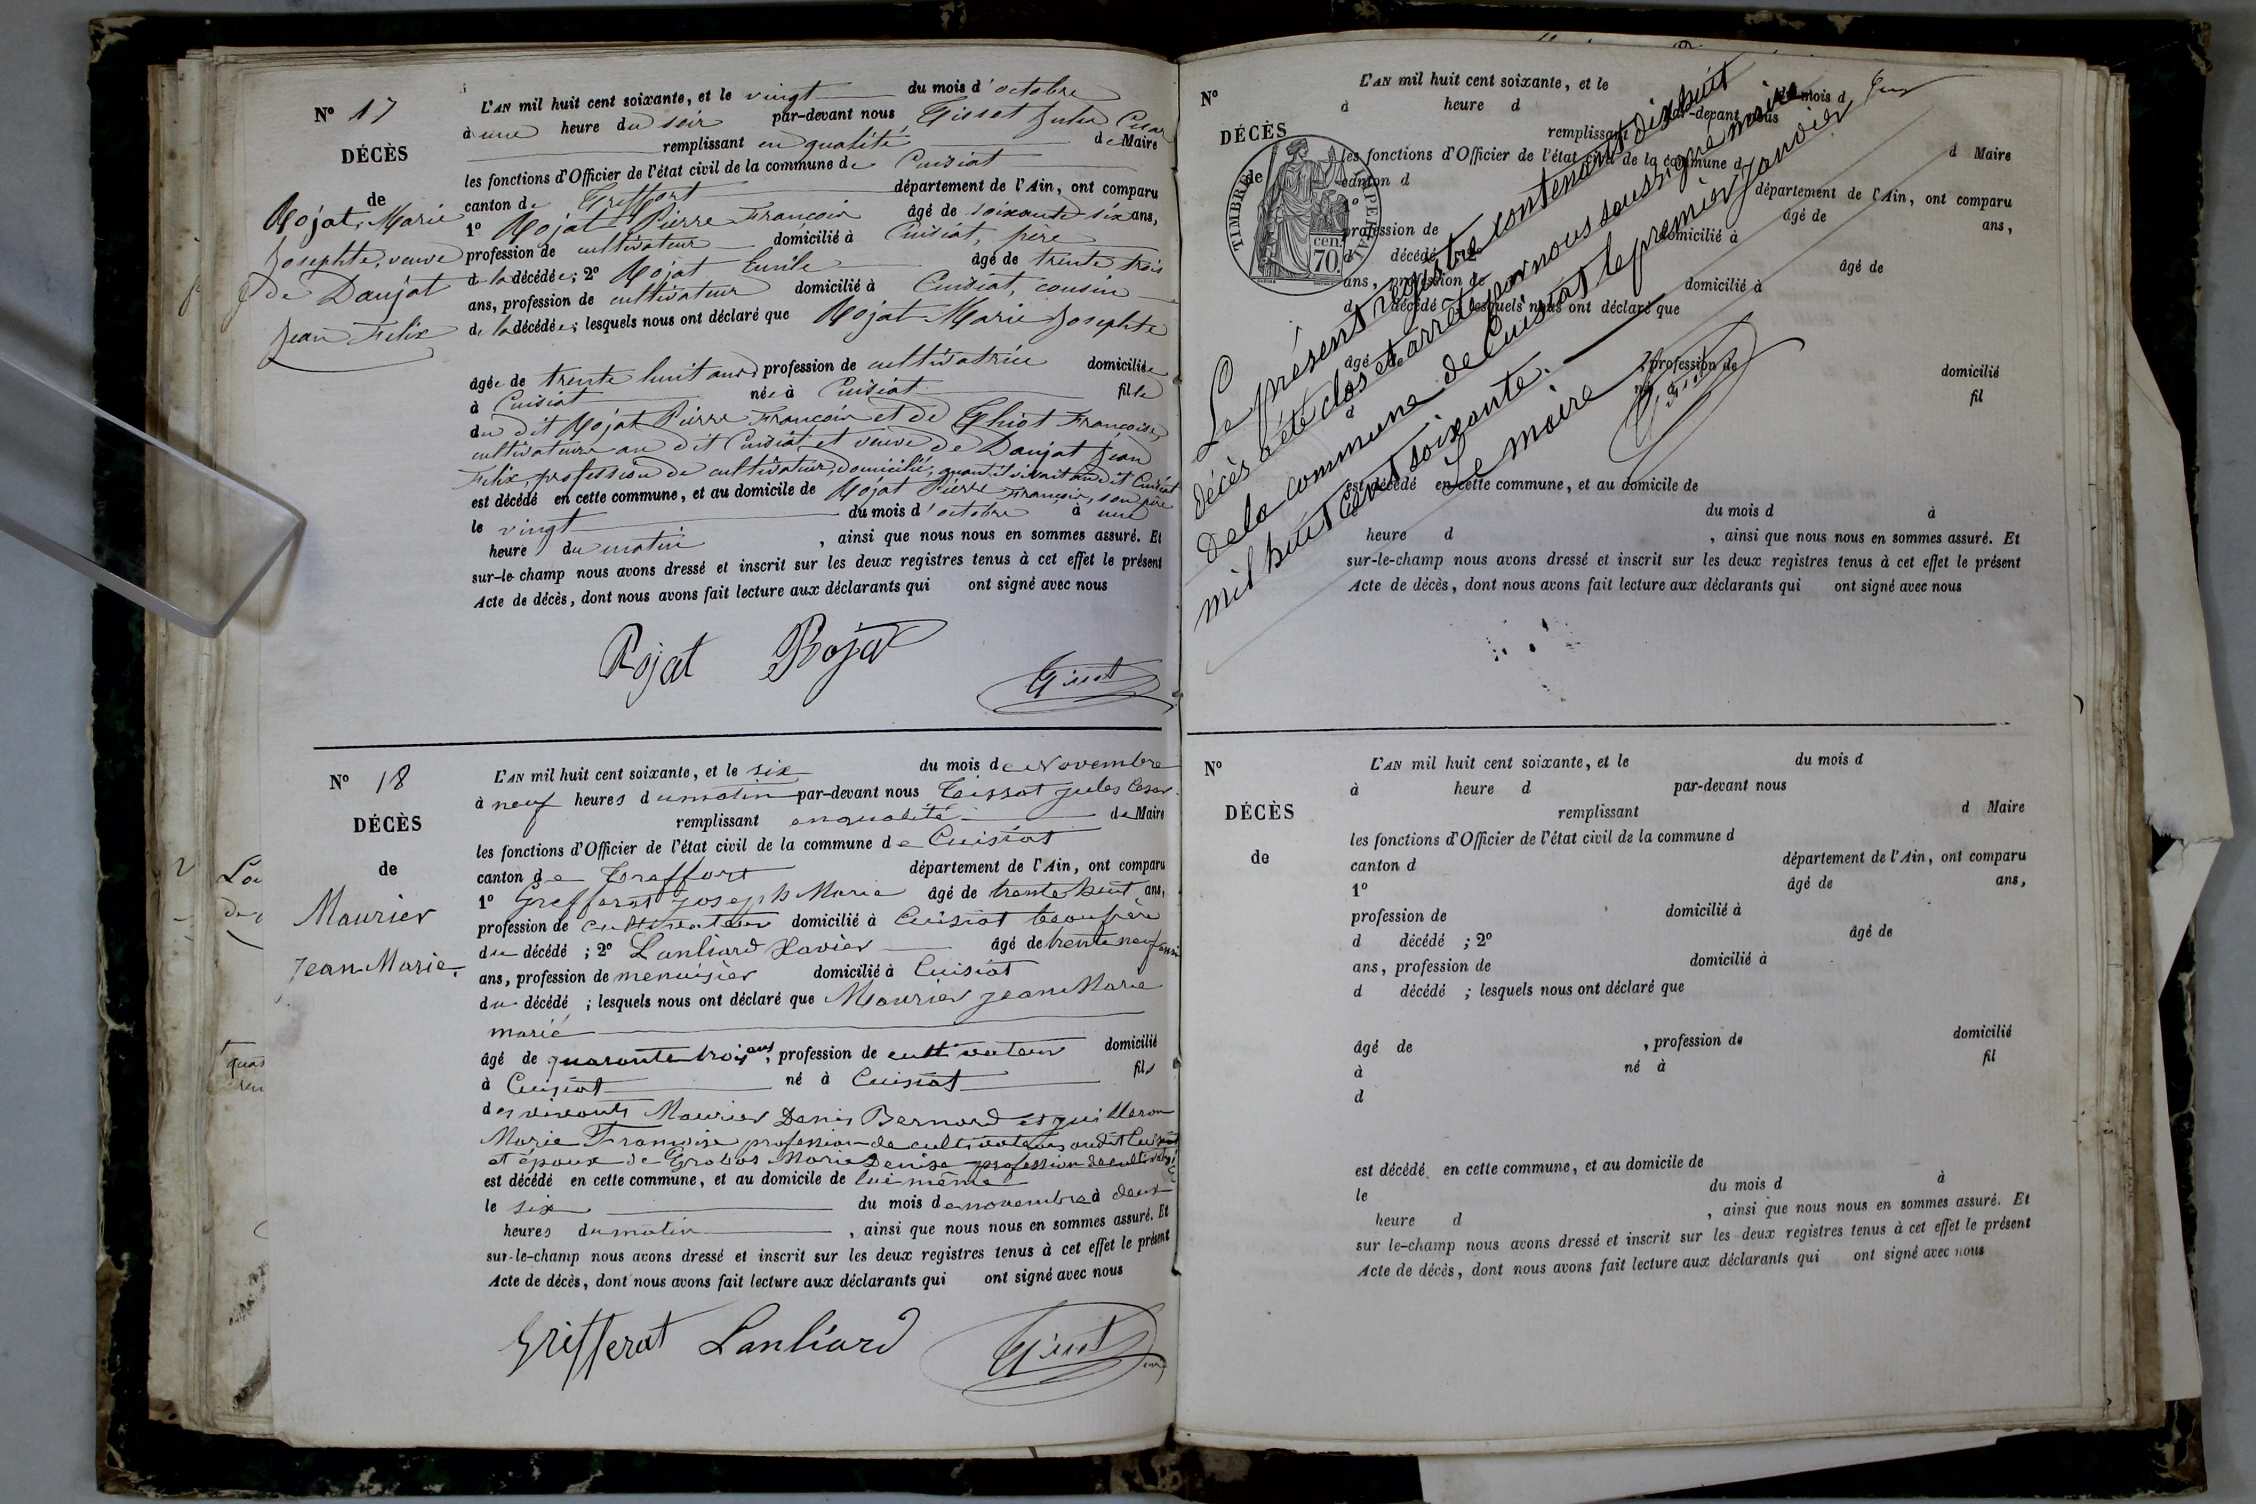 N° 17
DÉCÈS
de
Rojat, Marie
Josephte, veuve
de Danjat
Jean Felix
L'AN mil huit cent soixante, et le vingt du mois d'octobre
à une heure du soir par-devant nous Tissot Jules César
remplissant en qualité de Maire
les fonctions d'Officier de l'état civil de la commune de Cuisiat
canton de Treffort département de l'Ain, ont comparu
1° Rojat Pierre François âgé de soixante six ans,
profession de cultivateur domicilié à Cuisiat, père
de la décédée; 2° Rojat Emile âgé de trente trois
ans, profession de cultivateur domicilié à Cuisiat, cousin
de la décédée; lesquels nous ont déclaré que Rojat Marie Josephte
âgée de trente huit ans profession de cultivatrice domiciliée
à Cuisiat née à Cuisiat fille
du dit Rojat Pierre François et de Thiot Françoise,
cultivateurs au dit Cuisiat et veuve de Danjat Jean
Felix, profession de cultivateur, domicilié, quand il vivait au dit Cuisiat
est décédé en cette commune, et au domicile de Rojat Pierre François, son père
le vingt du mois d'octobre à une
heure du matin, ainsi que nous nous en sommes assuré. Et
sur-le-champ nous avons dressé et inscrit sur les deux registres tenus à cet effet le présent
Acte de décès, dont nous avons fait lecture aux déclarants qui ont signé avec nous
Rojat Rojat Tissot
N° 18
DÉCÈS
de
Maurier
Jean Marie.
L'AN mil huit cent soixante, et le six du mois de Novembre
à neuf heures du matin par-devant nous Tissot Jules Cesar
remplissant en qualité de Maire
les fonctions d'Officier de l'état civil de la commune de Cuisiat
canton de Treffort département de l'Ain, ont comparu
1° Grefferat Joseph Marie âgé de trente huit ans,
profession de cultivateur domicilié à Cuisiat beaufrère
du décédé ; 2° Lanliard Xavier âgé de trente neuf
ans, profession de menuisier domicilié à Cuisiat
du décédé ; lesquels nous ont déclaré que Maurier Jean Marie
marié
âgé de quarante trois ans, profession de cultivateur domicilié
à Cuisiat né à Cuisiat fils
des vivants Maurier Denis Bernard et guilleron
Marie Françoise profession de cultivateurs audit Cuisiat
et époux de Grobas Marie Denise profession de cultivatrice
est décédé en cette commune, et au domicile de lui même
le six du mois de novembre à deux
heures du matin, ainsi que nous nous en sommes assuré. Et
sur-le-champ nous avons dressé et inscrit sur les deux registres tenus à cet effet le présent
Acte de décès, dont nous avons fait lecture aux déclarants qui ont signé avec nous
Grifferat Lanliard Tissot
N°
DÉCÈS
de
TIMBRE IMPERIAL
70 cen.
L'AN mil huit cent soixante, et le du mois d
à heure d par-devant nous
remplissant d Maire
les fonctions d'Officier de l'état civil de la commune d
canton d département de l'Ain, ont comparu
1° âgé de ans,
profession de domicilié à
d décédé ; 2° âgé de
ans, profession de domicilié à
d décédé ; lesquels nous ont déclaré que
âgé de , profession de domicilié
à né à fil
d
est décédé en cette commune, et au domicile de
du mois d à
heure d , ainsi que nous nous en sommes assuré. Et
sur-le-champ nous avons dressé et inscrit sur les deux registres tenus à cet effet le présent
Acte de décès, dont nous avons fait lecture aux déclarants qui ont signé avec nous
Le présent registre contenant dix huit
décès a été clos et arrêté par nous soussigné maire
de la commune de Cuisiat le premier Janvier
mil huit cent soixante.
Le maire
Tissot
N°
DÉCÈS
de
L'AN mil huit cent soixante, et le du mois d
à heure d par-devant nous
remplissant d Maire
les fonctions d'Officier de l'état civil de la commune d
canton d département de l'Ain, ont comparu
1° âgé de ans,
profession de domicilié à
d décédé ; 2° âgé de
ans, profession de domicilié à
d décédé ; lesquels nous ont déclaré que
âgé de , profession de domicilié
à né à fil
d
est décédé en cette commune, et au domicile de
le du mois d à
heure d , ainsi que nous nous en sommes assuré. Et
sur le-champ nous avons dressé et inscrit sur les deux registres tenus à cet effet le présent
Acte de décès, dont nous avons fait lecture aux déclarants qui ont signé avec nous